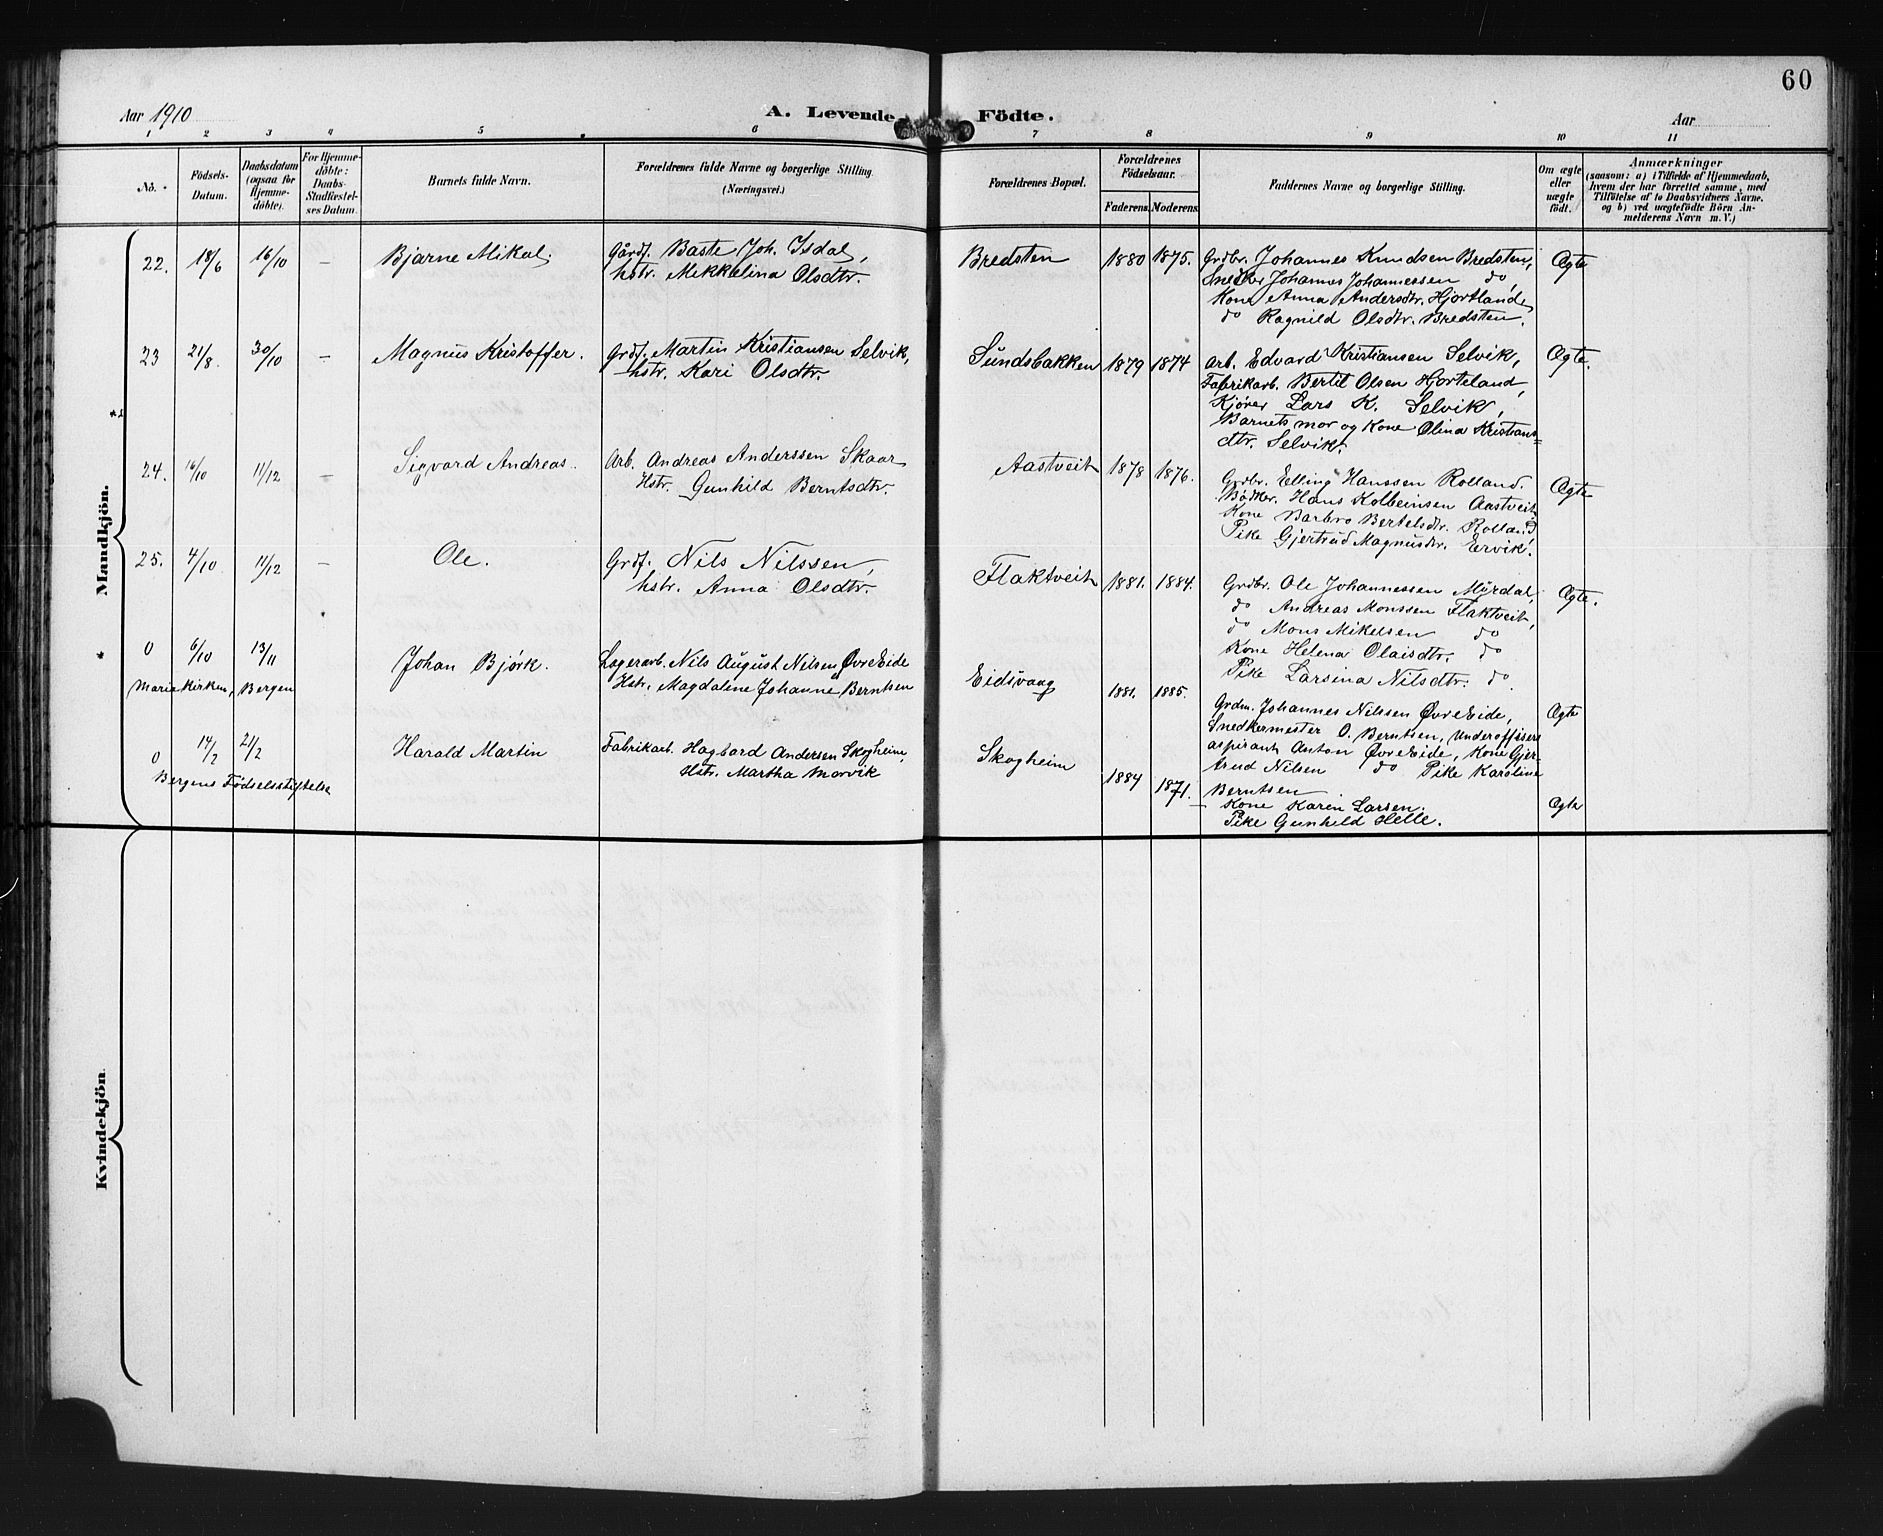 60
Aar 1910
A. Levende Födte.
Aar
1 2 3 4 5 6 7 8 9 10 11
No.
Födsels-
Datum.
Daabsdatum
(ogsaa for
Hjemme-
döbte).
For Hjemme-
döbte:
Daabs-
Stadfæstel-
ses Datum.
Barnets fulde Navn.
Forældrenes fulde Navne og borgerlige Stilling.
(Næringsvei.)
Forældrenes Bopæl.
Forældrenes
Födselsaar.
Faderens. Moderens.
Faddernes Navne og borgerlige Stilling.
Om ægte
eller
uægte
födt.
Anmærkninger
(saasom: a) i Tilfælde af Hjemmedaab,
hvem der har forrettet samme, med
Tilföielse af to Daabsvidners Navne.
og b) ved uægtefödte Börn An-
melderens Navn m. V.)
Mandkjön.
22. 18/6 16/10 – Bjarne Mikal.
Gårdf. Baste Joh. Isdal,
hstr. Mikkelina Olsdtr.
Bredsten 1880 1875.
Grdbr. Johannes Knudsen Bredsten,
Snedker Johannes Johannessen do,
Kone Anna Andersdtr. Hjortland,
do Ragnild Olsdtr. Bredsten.
Ægte
23 21/8. 30/10 – Magnus Kristoffer.
Grdf. Martin Kristiansen Selvik,
hstr. Kari Olsdtr.
Sundsbakken 1879 1874
Arb. Edvard Kristiansen Selvik,
Fabrikarb. Bertil Olsen Hjorteland,
Kjører Lars K. Selvik,
Barnets mor og Kone Olina Kristians=
dtr. Selvik.
Ægte.
24. 16/10 11/12 – Sigvard Andreas.
Arb. Andreas Anderssen Skaar
Hstr. Gunhild Berntsdtr.
Aastveit 1878 1876.
Grdbr. Elling Hanssen Rolland.
Bødker. Hans Kolbeinsen Aastveit
Kone Barbro Bertelsdtr. Rolland
Pike Gjertrud Magnusdtr. Eervik.
Ægte
25. 4/10 11/12 – Ole.
Grdf. Nils Nilssen,
hstr. Anna Olsdtr.
Flaktveit 1881. 1884.
Grdbr. Ole Johannessen Myrdal,
do Andreas Monssen Flaktveit,
do Mons Mikelsen do
Kone Helena Olaisdtr. do
Pike Larsina Nilsdtr. do.
Ægte.
0 6/10 13/11 Johan Bjørk.
Mariakirken, Bergen
Lagerarb. Nils August Nilsen ØvreEide
Hstr. Magdalene Johanne Berntsen
Eidsvaag 1881. 1885.
Grdm. Johannes Nilssen ØvreEide,
Snedkermester O. Berntsen, Underoffisers
aspirant Anton ØvreEide, Kone Gjer-
trud Nilsen do Pike Karoline
Berntsen
Ægte
0 14/2 21/2 Harald Martin
Bergens Fødselsstiftelse
Fabrikarb. Hagbard Andersen Skogheim,
Hstr. Martha Morvik
Skogheim 1884 1871.
Kone Karen Larsen.
Pike Gunhild Helle.
Ægte
Kvindekjön.